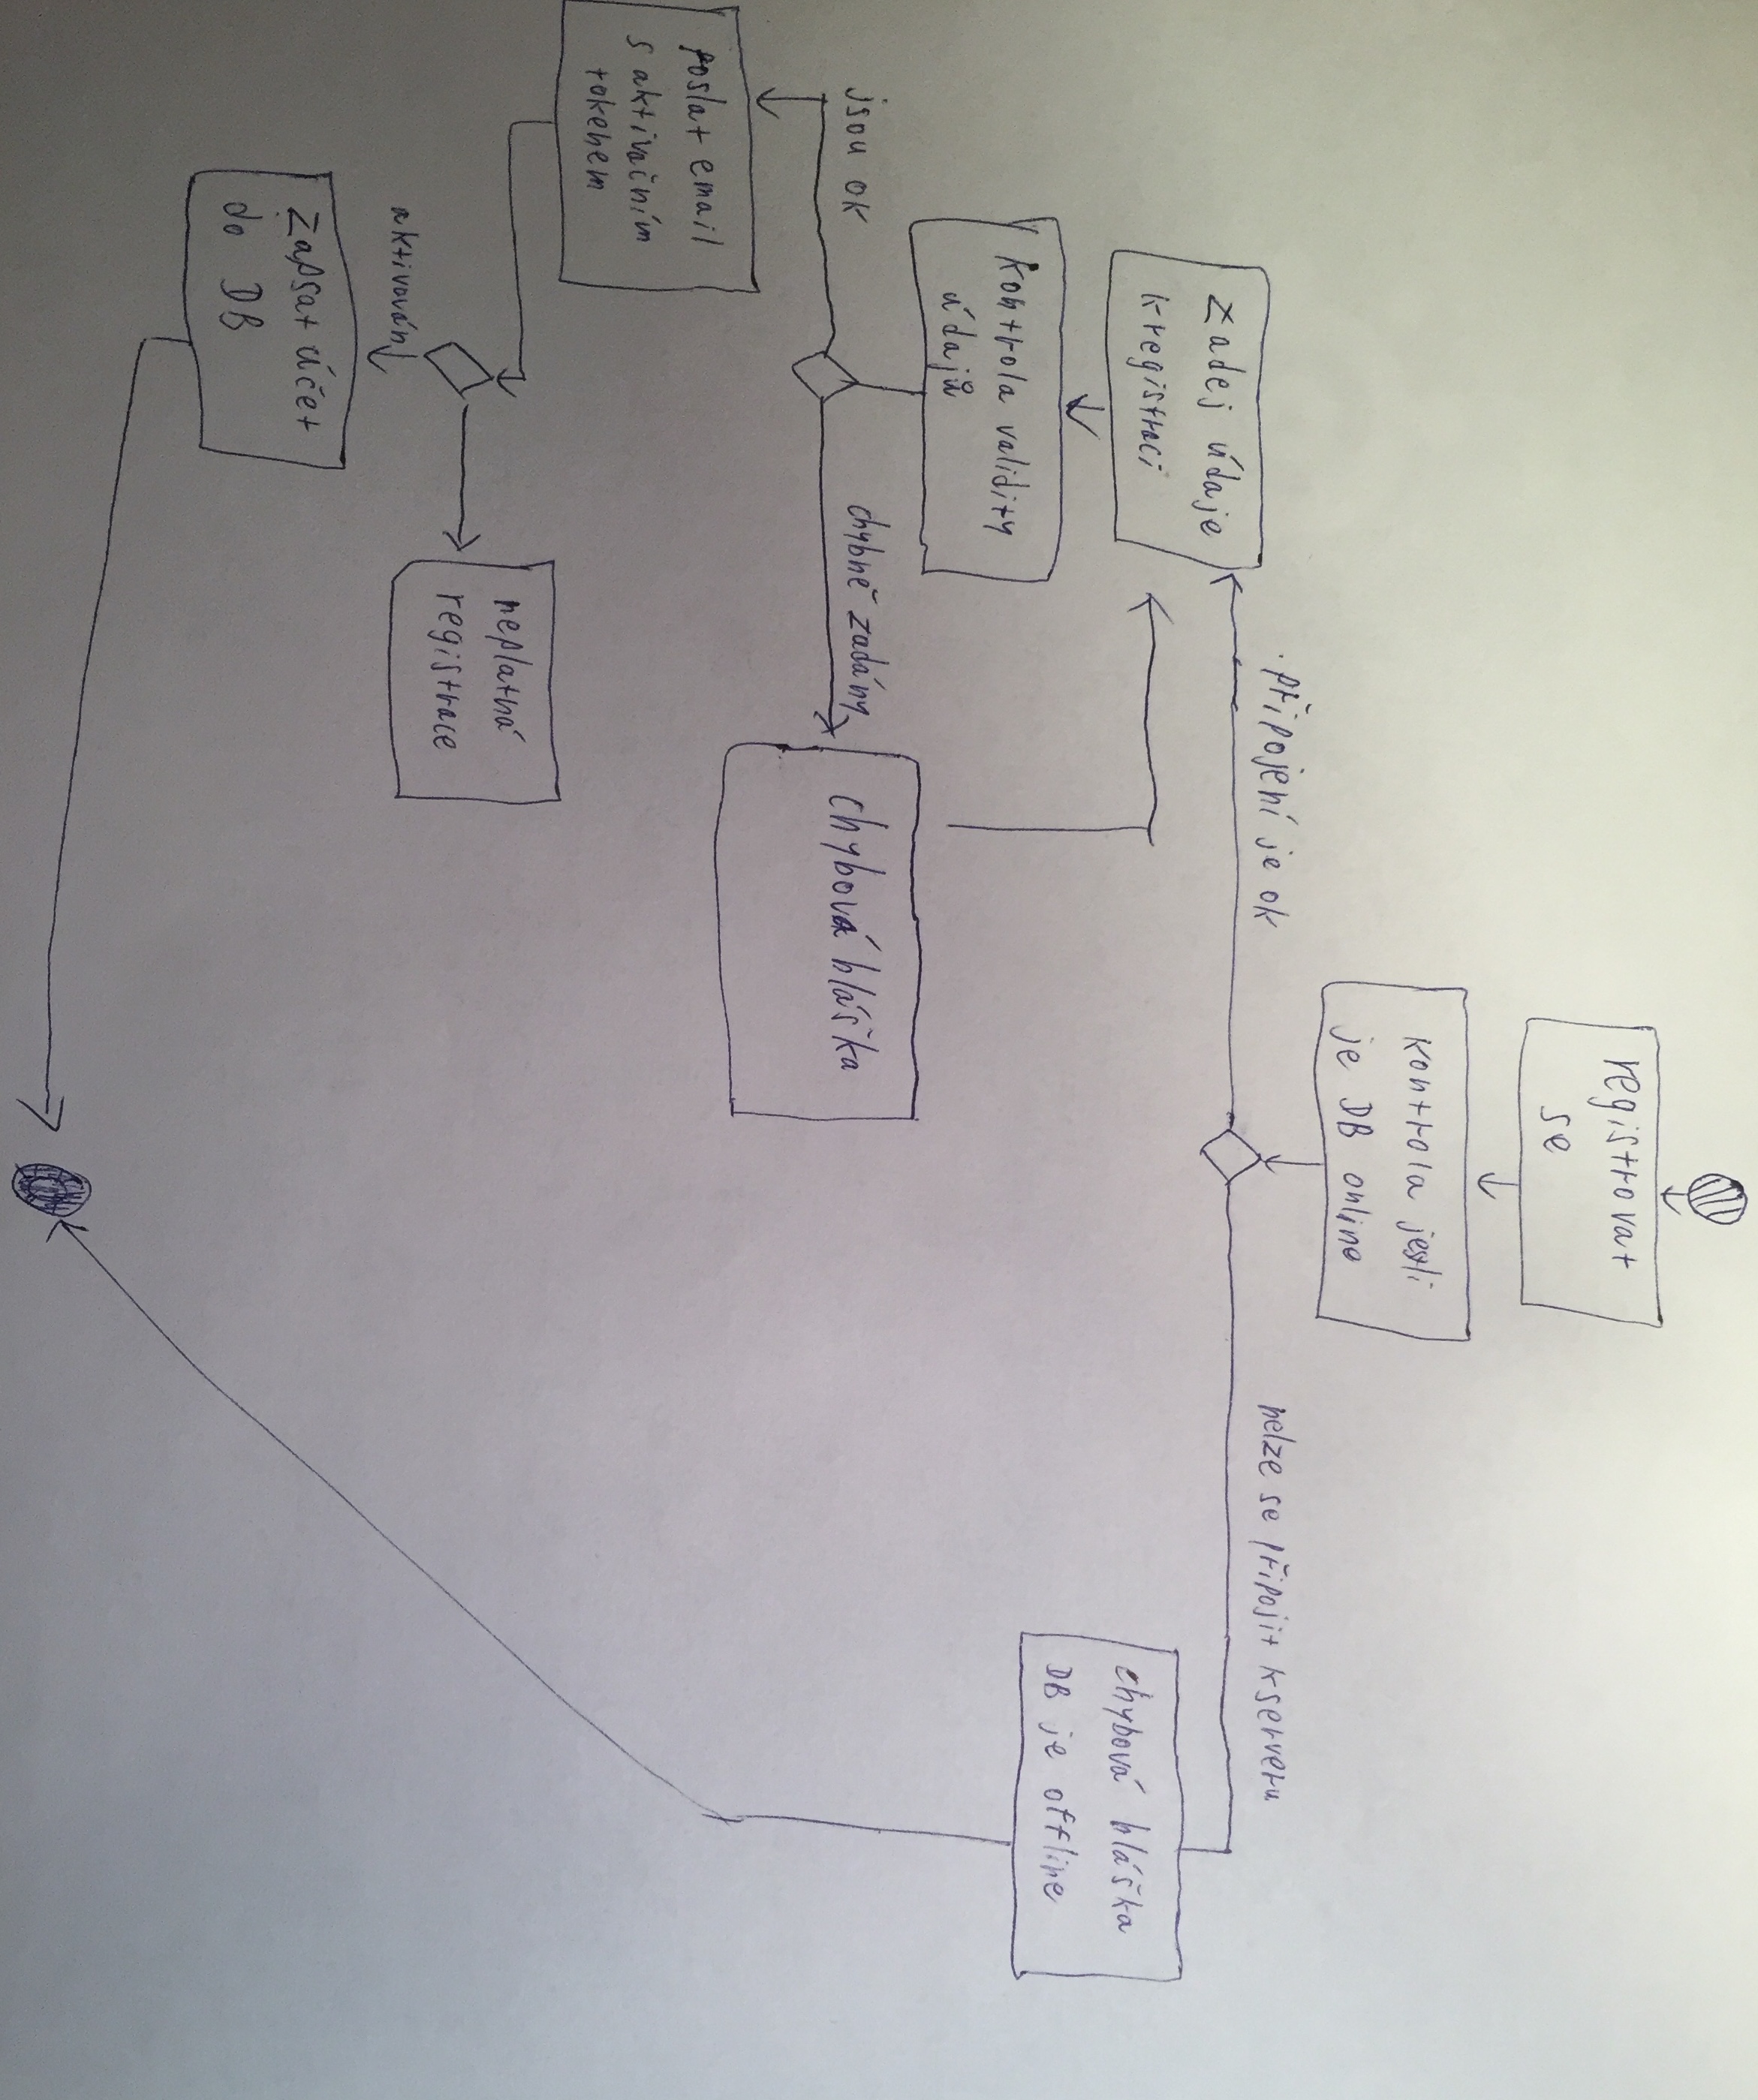 registrovat
se
kontrola jestli
je DB online
připojení je ok
nelze se připojit k serveru
zadej údaje
k registraci
chybová hláška
DB je offline
kontrola validity
údajů
jsou ok
chybně zadány
chybová hláška
poslat email
s aktivačním
tokenem
aktivován
neplatná
registrace
zapsat účet
do DB